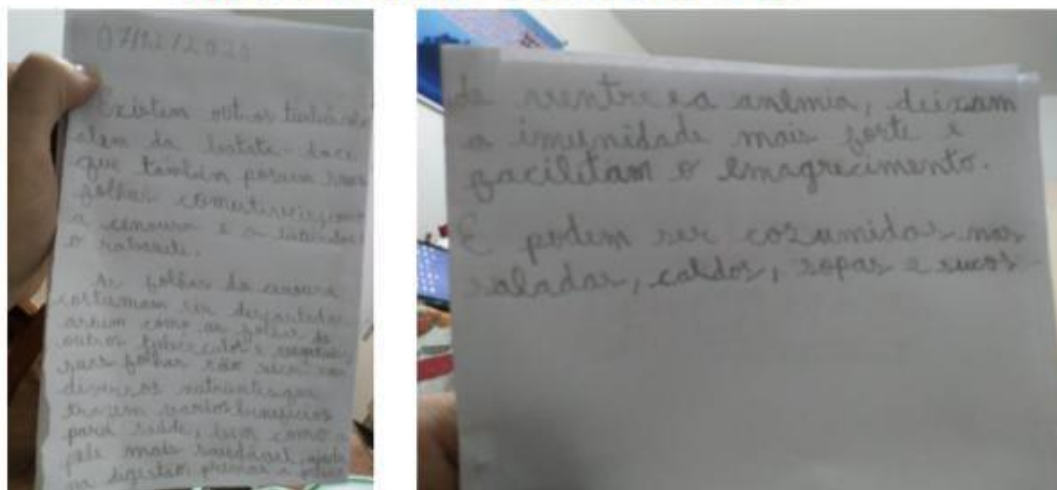 07/12/2020
Existem outros
alem da batata-doce
que também possuem suas
folhas comestíveis
a cenoura e a
o rabanete.
As folhas da cenoura
costumam ser descartadas
assim como as folhas de
outros e
suas folhas são ricas em
diversos nutrientes que
trazem varios beneficios
para saúde, bem como a
pele mais saudável, ajuda
na digestão previne a
de ventre e a anemia, deixam
a imunidade mais forte e
facilitam o emagrecimento.
E podem ser cozumidas nas
saladas, caldos, sopas e sucos